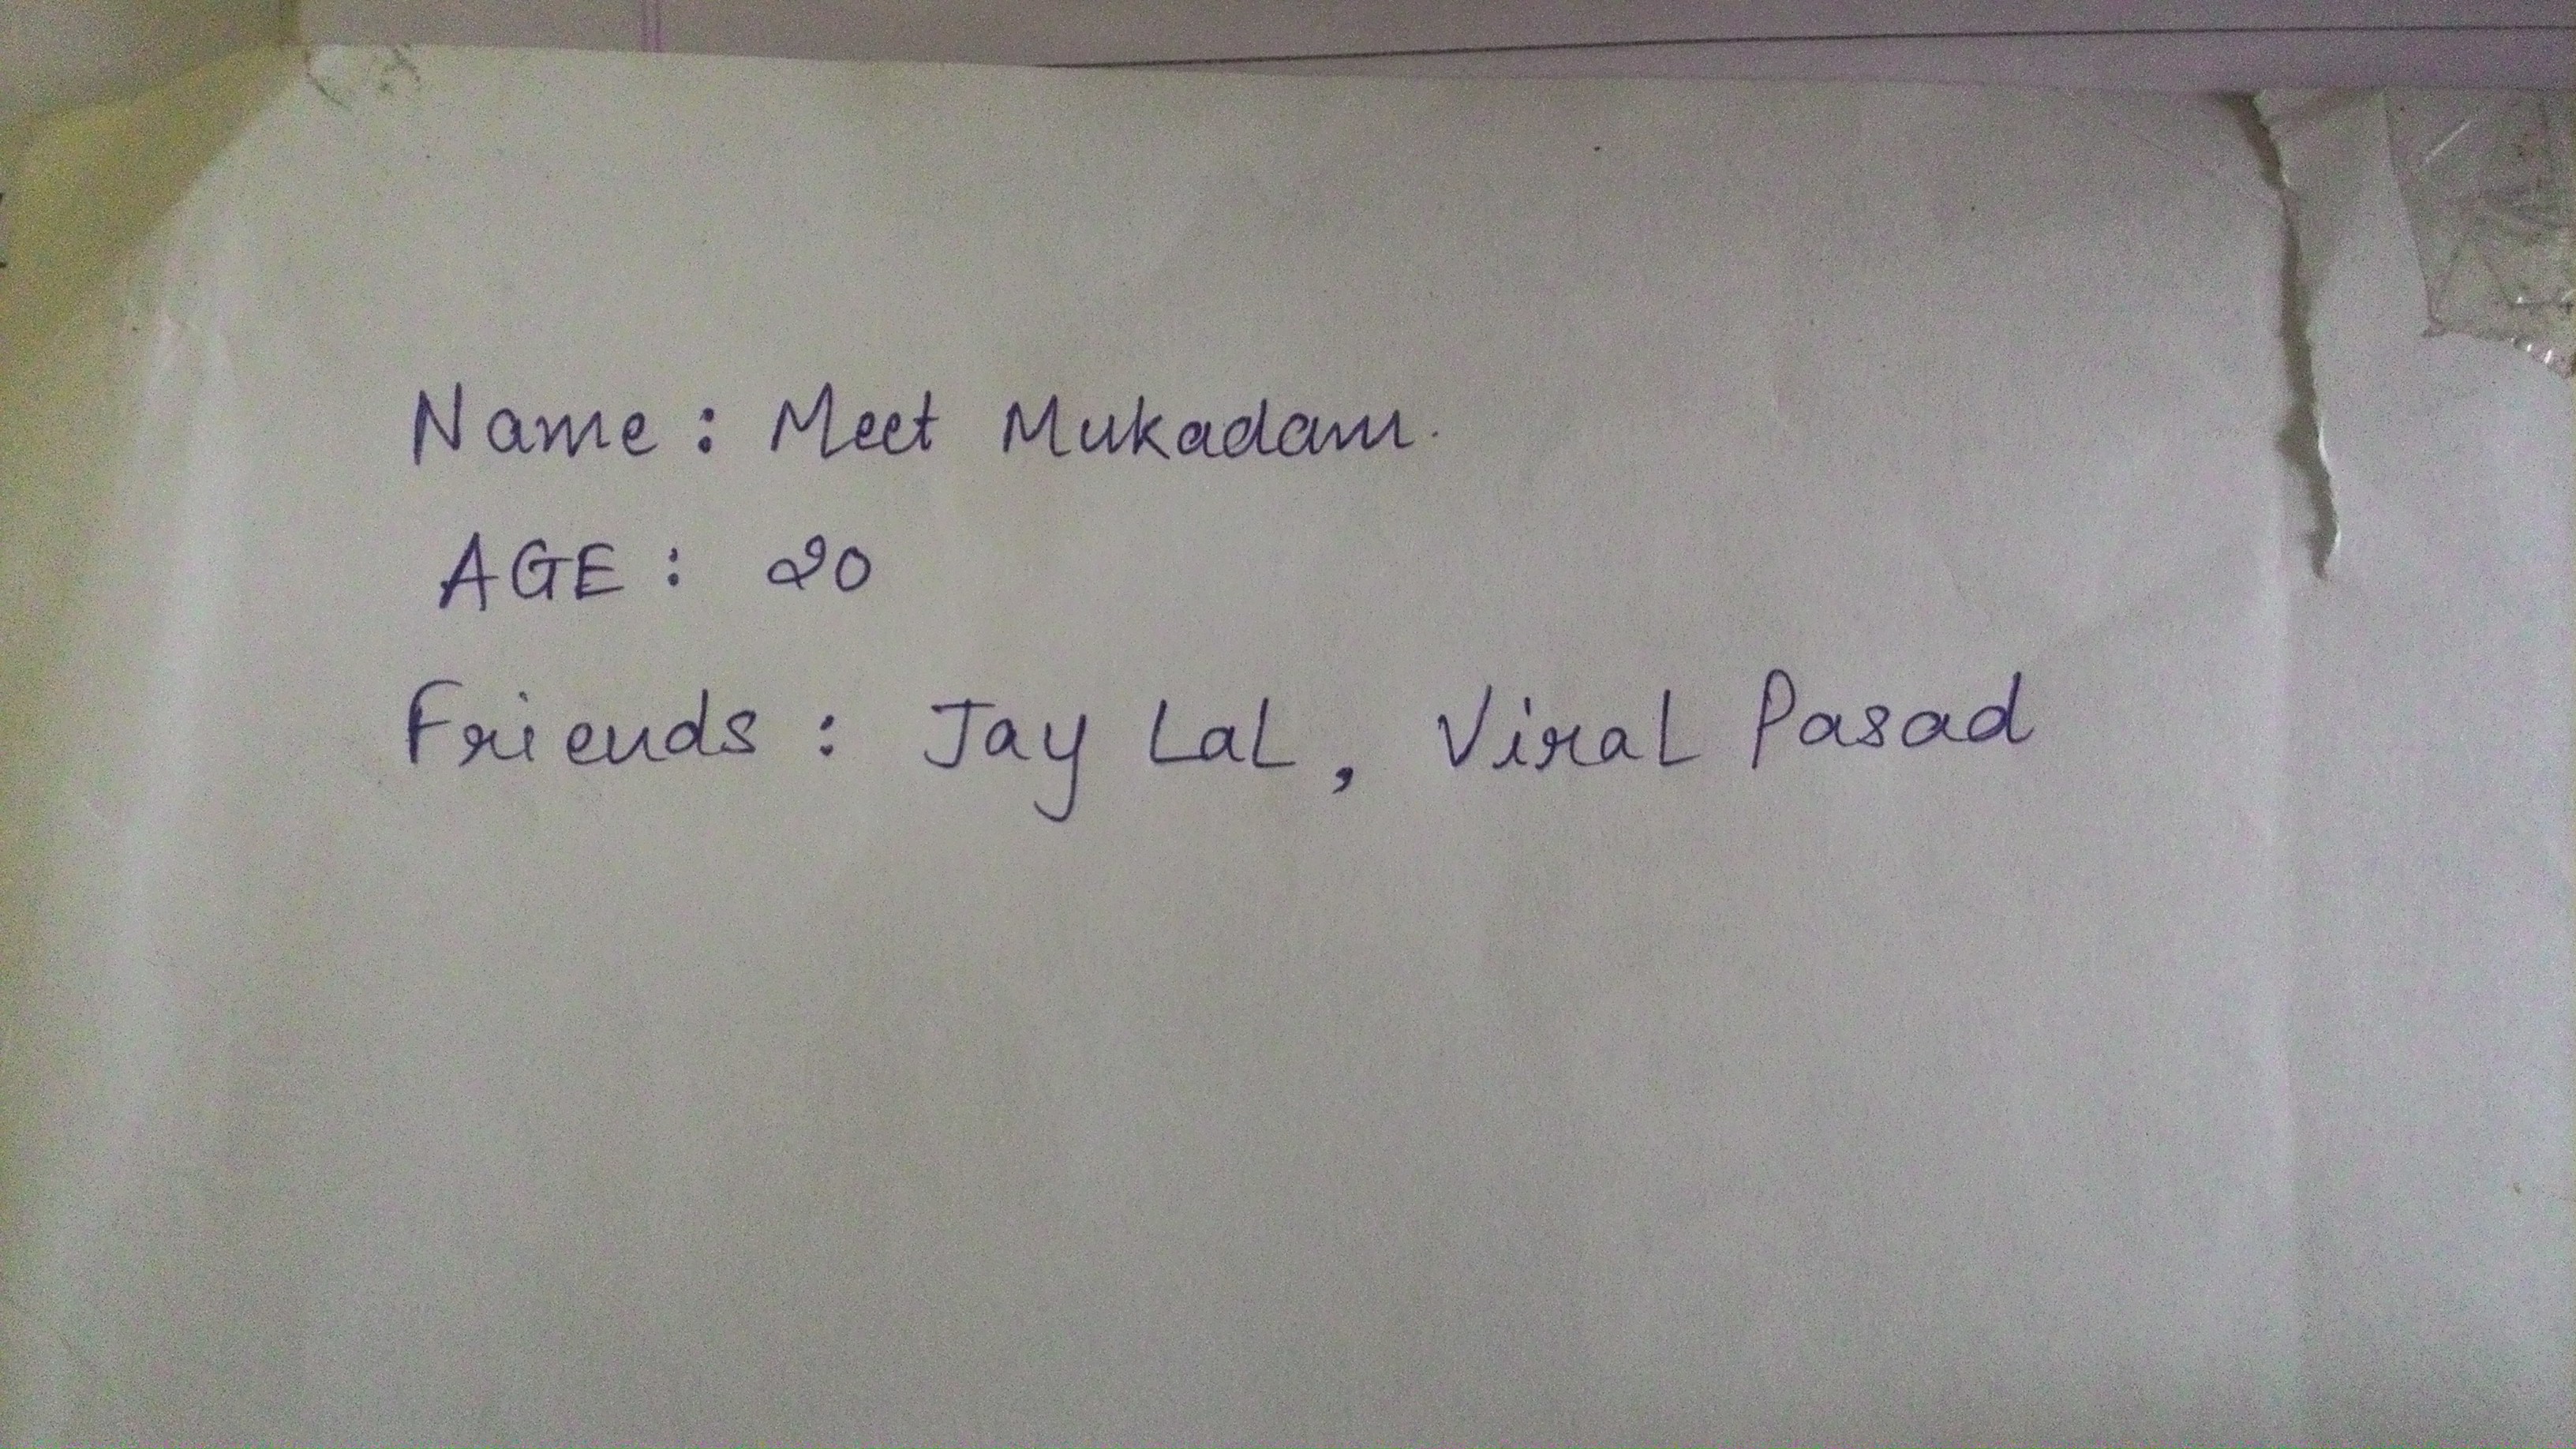 Name : Meet Mukadam.
AGE : 20
Friends : Jay Lal, Viral Pasad